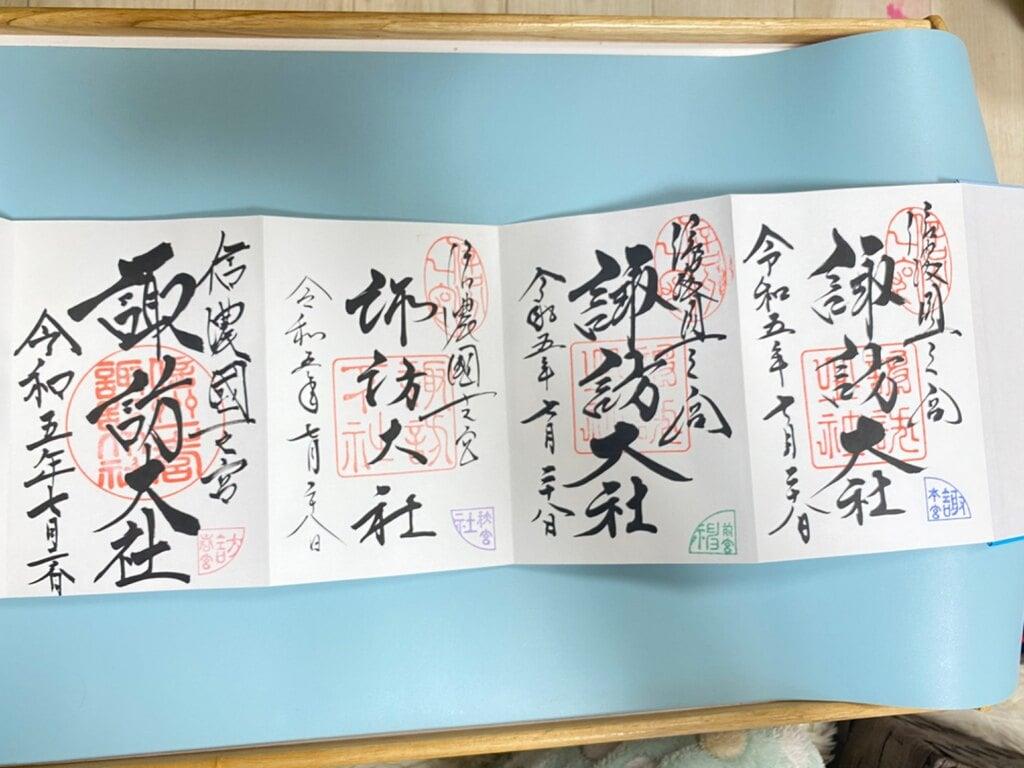 信濃國一之宮
諏訪大社
令和五年七月二十八日
諏
本宮
信濃國一之宮
諏訪大社
令和五年七月二十八日
前宮
信濃國一之宮
諏訪大社
令和五年七月二十八日
社
秋宮
信濃國一之宮
諏訪大社
令和五年七月
訪
春宮